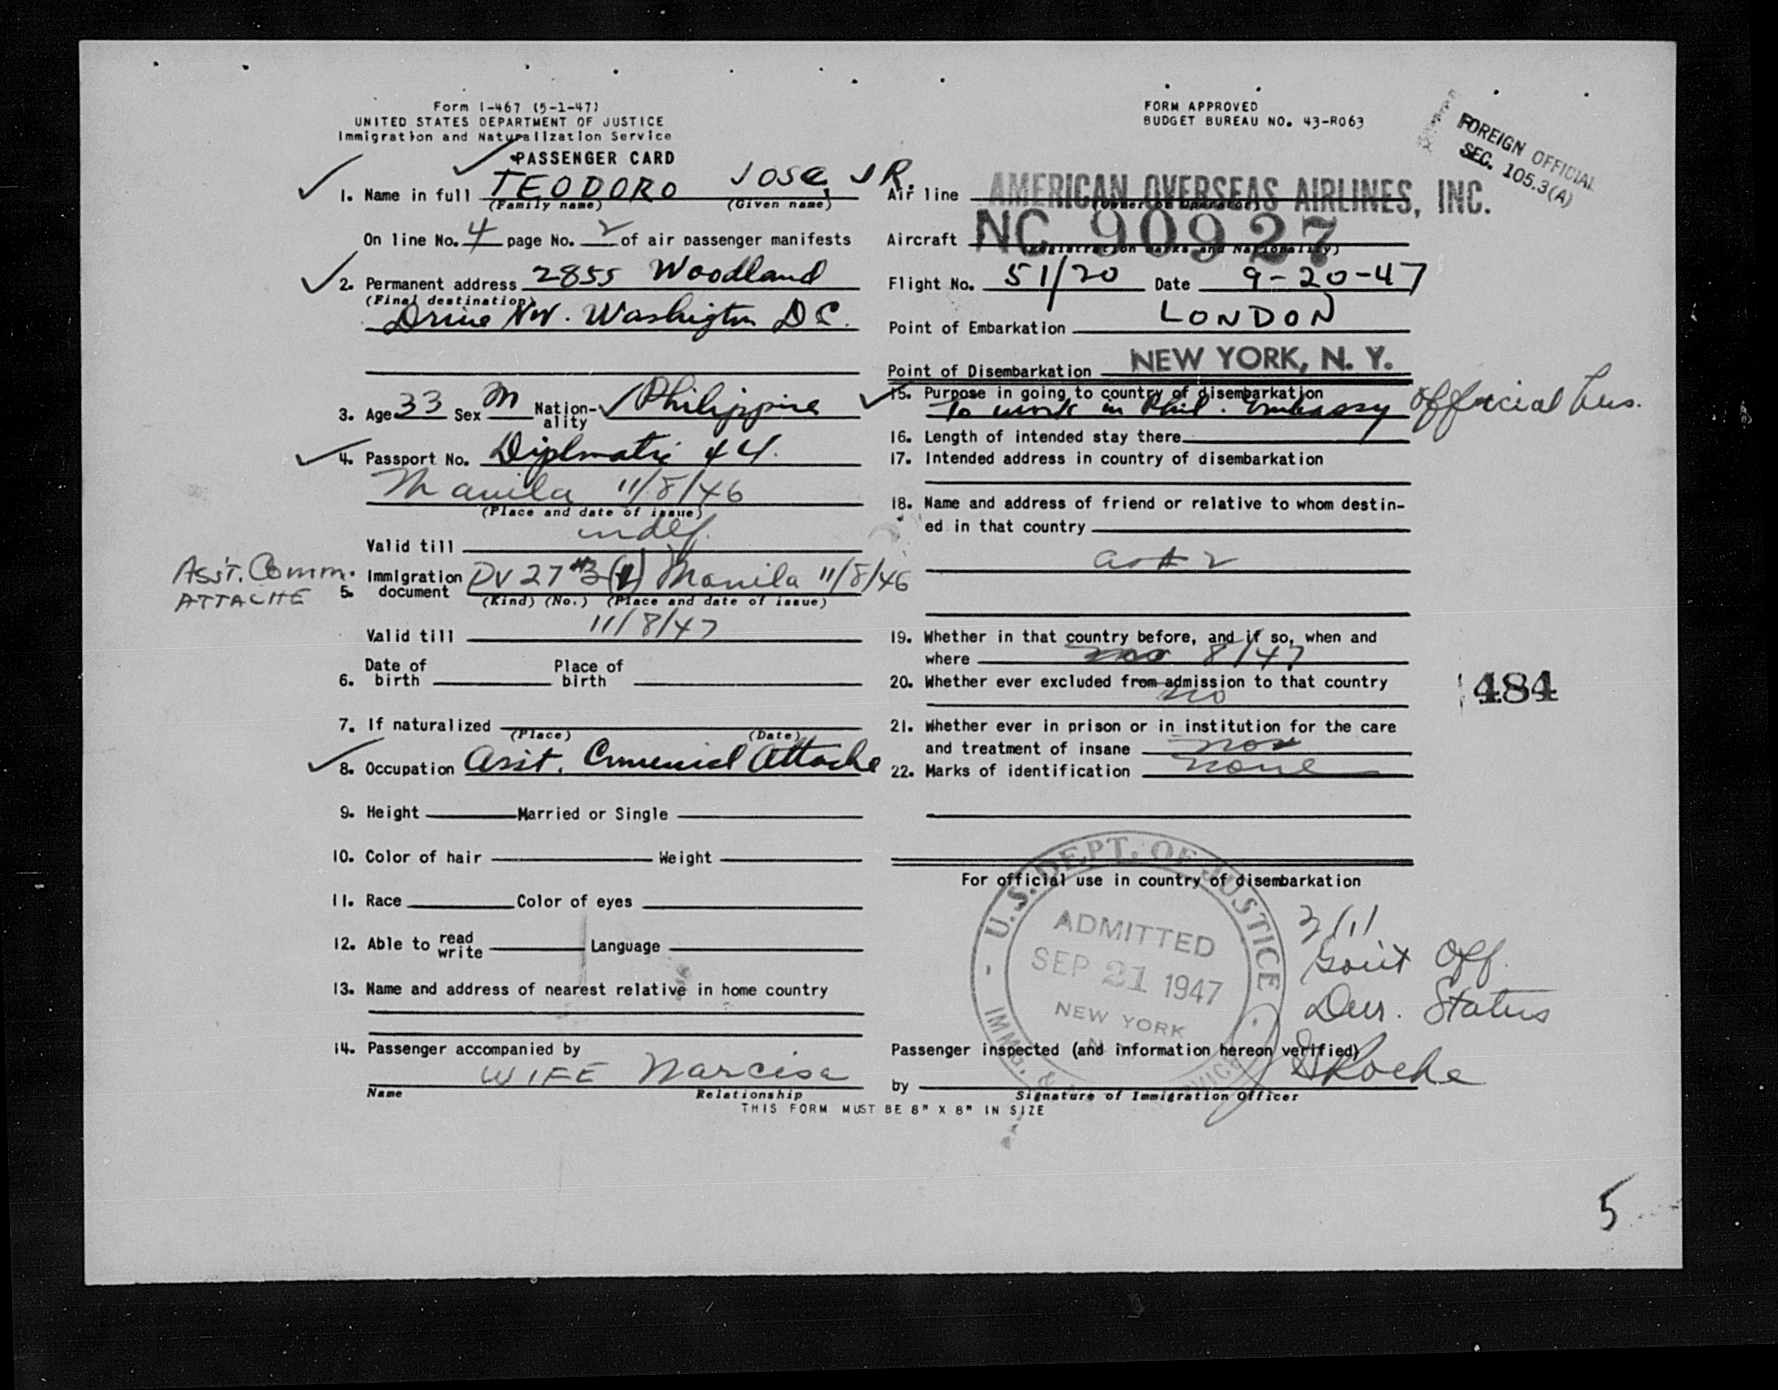 Form I-467 (5-1-47)
UNITED STATES DEPARTMENT OF JUSTICE
Immigration and Naturalization Service
PASSENGER CARD
FORM APPROVED
BUDGET BUREAU NO. 43-R063
FOREIGN OFFICIAL
SEC. 105.3(A)
1. Name in full TEODORO JOSE, JR.
(Family name) (Given name)
On line No. 4 page No. 2 of air passenger manifests
2. Permanent address 2855 Woodland
(Final destination)
Drive NW. Washington D.C.
3. Age 33 Sex M Nation-ality Philippine
4. Passport No. Diplomatic #44.
Manila 11/8/46
(Place and date of issue)
Valid till indef.
Ass't. Comm.
ATTACHE
5. Immigration document DV 27 #3(1) Manila 11/8/46
(Kind) (No.) (Place and date of issue)
Valid till 11/8/47
6. Date of birth Place of birth
7. If naturalized
(Place) (Date)
8. Occupation Asst. Commercial Attache
9. Height Married or Single
10. Color of hair Weight
11. Race Color of eyes
12. Able to read write Language
13. Name and address of nearest relative in home country
14. Passenger accompanied by
WIFE Narcisa
Name Relationship
THIS FORM MUST BE 8" X 8" IN SIZE
Air line AMERICAN OVERSEAS AIRLINES, INC.
(Owner or Operator)
Aircraft NC 90927
(Registration Marks and Nationality)
Flight No. 51/20 Date 9-20-47
Point of Embarkation LONDON
Point of Disembarkation NEW YORK, N. Y.
15. Purpose in going to country of disembarkation
To work in Phil. Embassy official bus.
16. Length of intended stay there
17. Intended address in country of disembarkation
18. Name and address of friend or relative to whom destin-
ed in that country
as # 2
19. Whether in that country before, and if so, when and
where 8/47
20. Whether ever excluded from admission to that country
no
21. Whether ever in prison or in institution for the care
and treatment of insane no
22. Marks of identification none
484
For official use in country of disembarkation
U.S. DEPT. OF JUSTICE
ADMITTED
SEP 21 1947
NEW YORK
N.
IMM. &
SERVICE
3/1/
Gov't Off.
Dur. Status
Passenger inspected (and information hereon verified)
by Roche
Signature of Immigration Officer
5